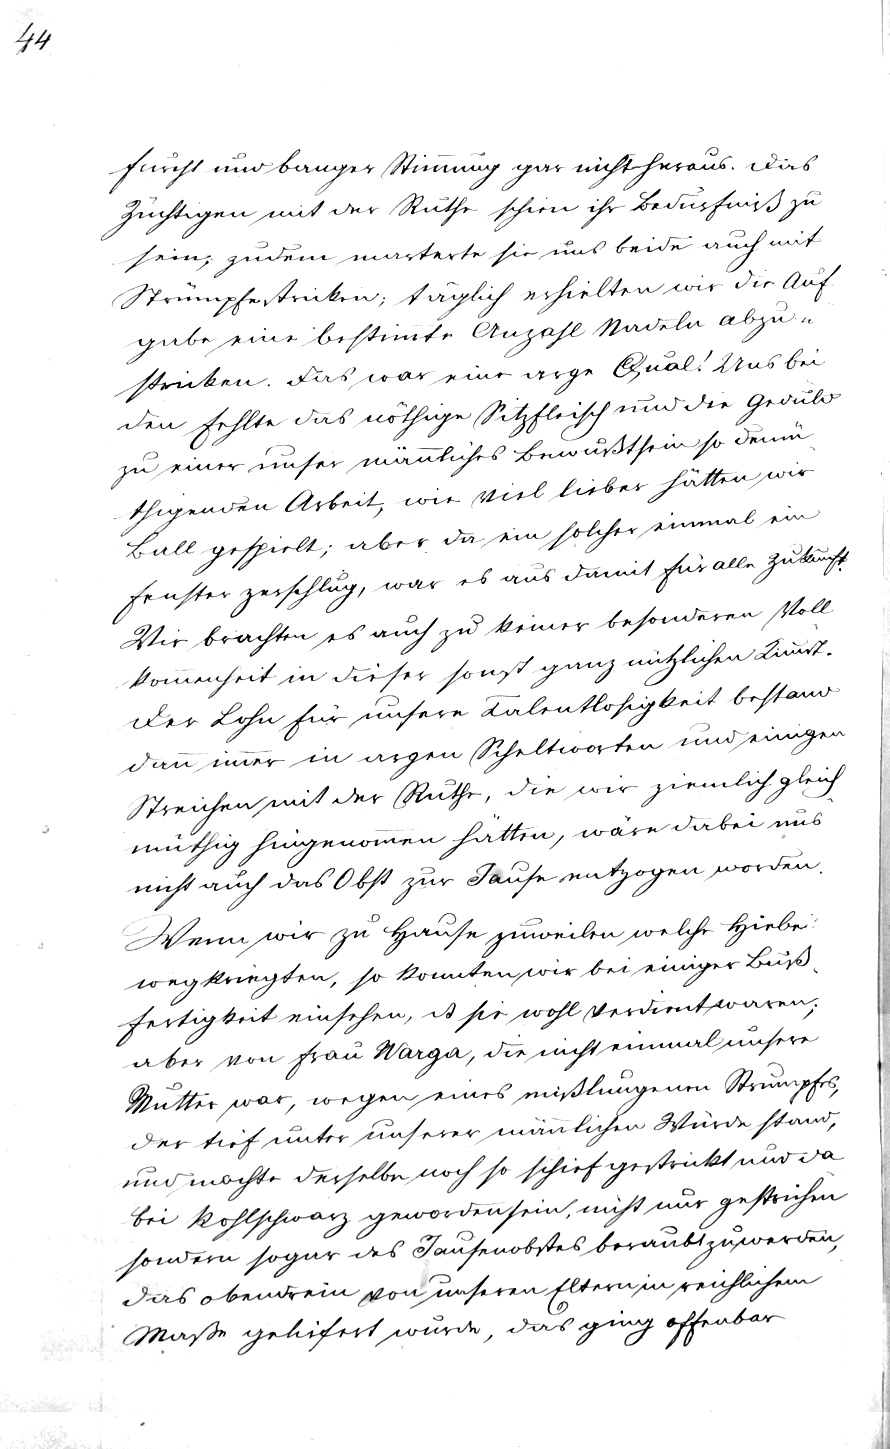 44
Furcht und banger Stimmung gar nicht heraus. Das
Züchtigen mit der Ruthe schien ihr Bedürfniß zu
sein; zudem marterte sie uns beide auch mit
Strümpfestricken; täglich erhielten wir die Auf
gabe eine bestimmte Anzahl Nadeln abzu-
stricken. Das war eine arge Qual! Uns bei
den fehlte das nöthige Sitzfleisch und die Geduld
zu einer unser männliches Bewußtsein so demü
thigenden Arbeit, wie viel lieber hätten wir
Ball gespielt; aber da ein solcher einmal ein
Fenster zerschlug, war es aus damit für alle Zukunft.
Wir brachten es auch zu keiner besonderen Voll
kommenheit in dieser sonst ganz nützlichen Kunst.
Der Lohn für unsere Talentlosigkeit bestand
dann immer in argen Scheltworten und einigen
Streichen mit der Ruthe, die wir ziemlich gleich
müthig hingenommen hätten, wäre dabei uns
nicht auch das Obst zur Jause entzogen worden.
Wenn wir zu Hause zuweilen welche Hiebe
wegkriegten, so konnten wir bei einiger Buß
fertigkeit einsehen, daß sie wohl verdient waren;
aber von Frau Warga, die nicht einmal unsere
Mutter war, wegen eines mißlungenen Strumpfes,
der tief unter unserer männlichen Würde stand,
und mochte derselbe noch so schief gestrickt und da
bei kohlschwarz geworden sein, nicht nur gestrichen
sondern sogar des Jausenobstes beraubt zu werden,
das obendrein von unseren Eltern in reichlichem
Maße geliefert wurde, das ging offenbar